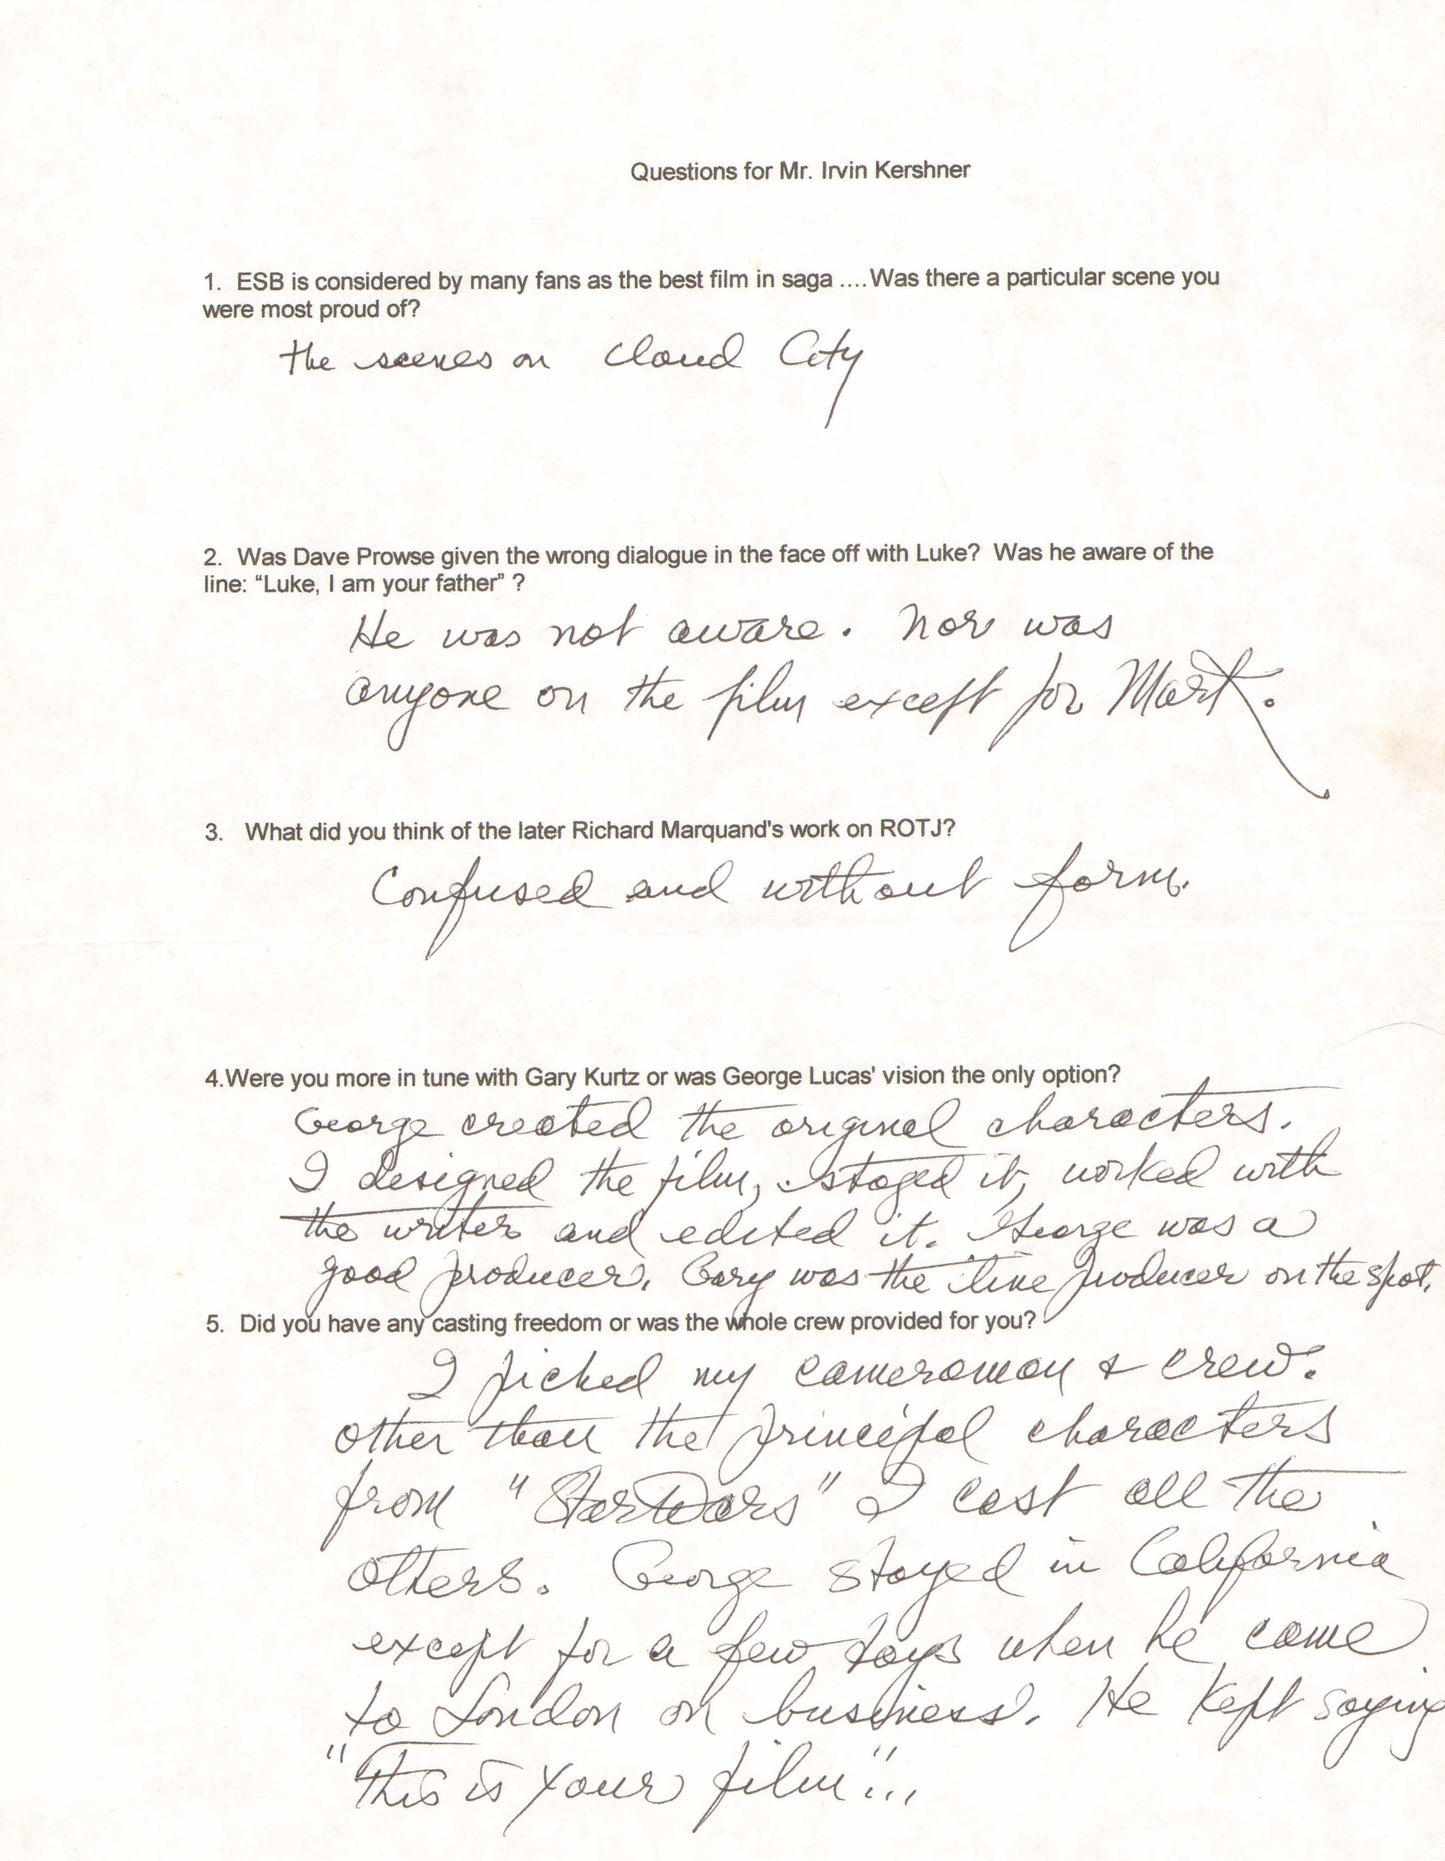 Questions for Mr. Irvin Kershner
1. ESB is considered by many fans as the best film in saga ....Was there a particular scene you
were most proud of?
the scenes on Cloud City
2. Was Dave Prowse given the wrong dialogue in the face off with Luke? Was he aware of the
line: “Luke, I am your father” ?
He was not aware. Nor was
anyone on the film except for Mark.
3. What did you think of the later Richard Marquand's work on ROTJ?
Confused and without form.
4.Were you more in tune with Gary Kurtz or was George Lucas' vision the only option?
George created the original characters.
I designed the film, staged it, worked with
the writer and edited it. George was a
good producer. Gary was the line producer on the spot.
5. Did you have any casting freedom or was the whole crew provided for you?
I picked my cameraman & crew.
Other than the principal characters
from "Star Wars" I cast all the
others. George stayed in California
except for a few days when he came
to London on business. He kept saying
"This is your film"...